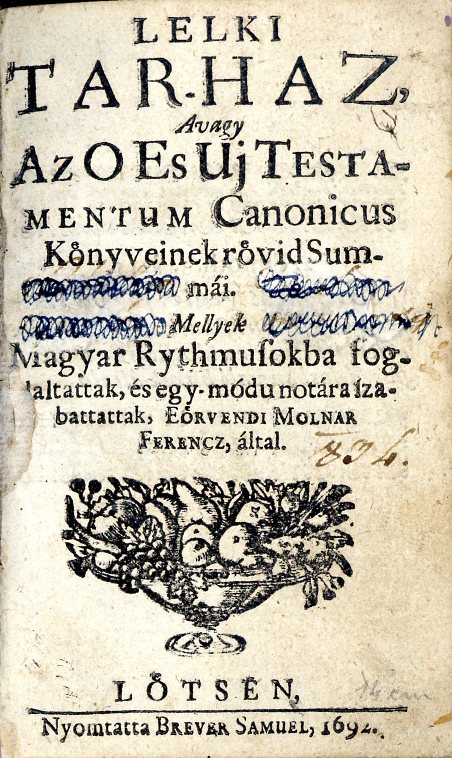 LELKI
TAR-HAZ,
Avagy
Az O Es Uj TESTA-
MENTUM Canonicus
Koͤnyveinek roͤvid Sum-
mái.
Mellyek
Magyar Rythmuſokba fog-
laltattak, és egy-módu notára ſza-
battattak, EOͤRVENDI MOLNAR
FERENCZ, által.
834.
LOͤTSÉN,
14 cm
Nyomtatta BREVER SAMUEL, 1692.